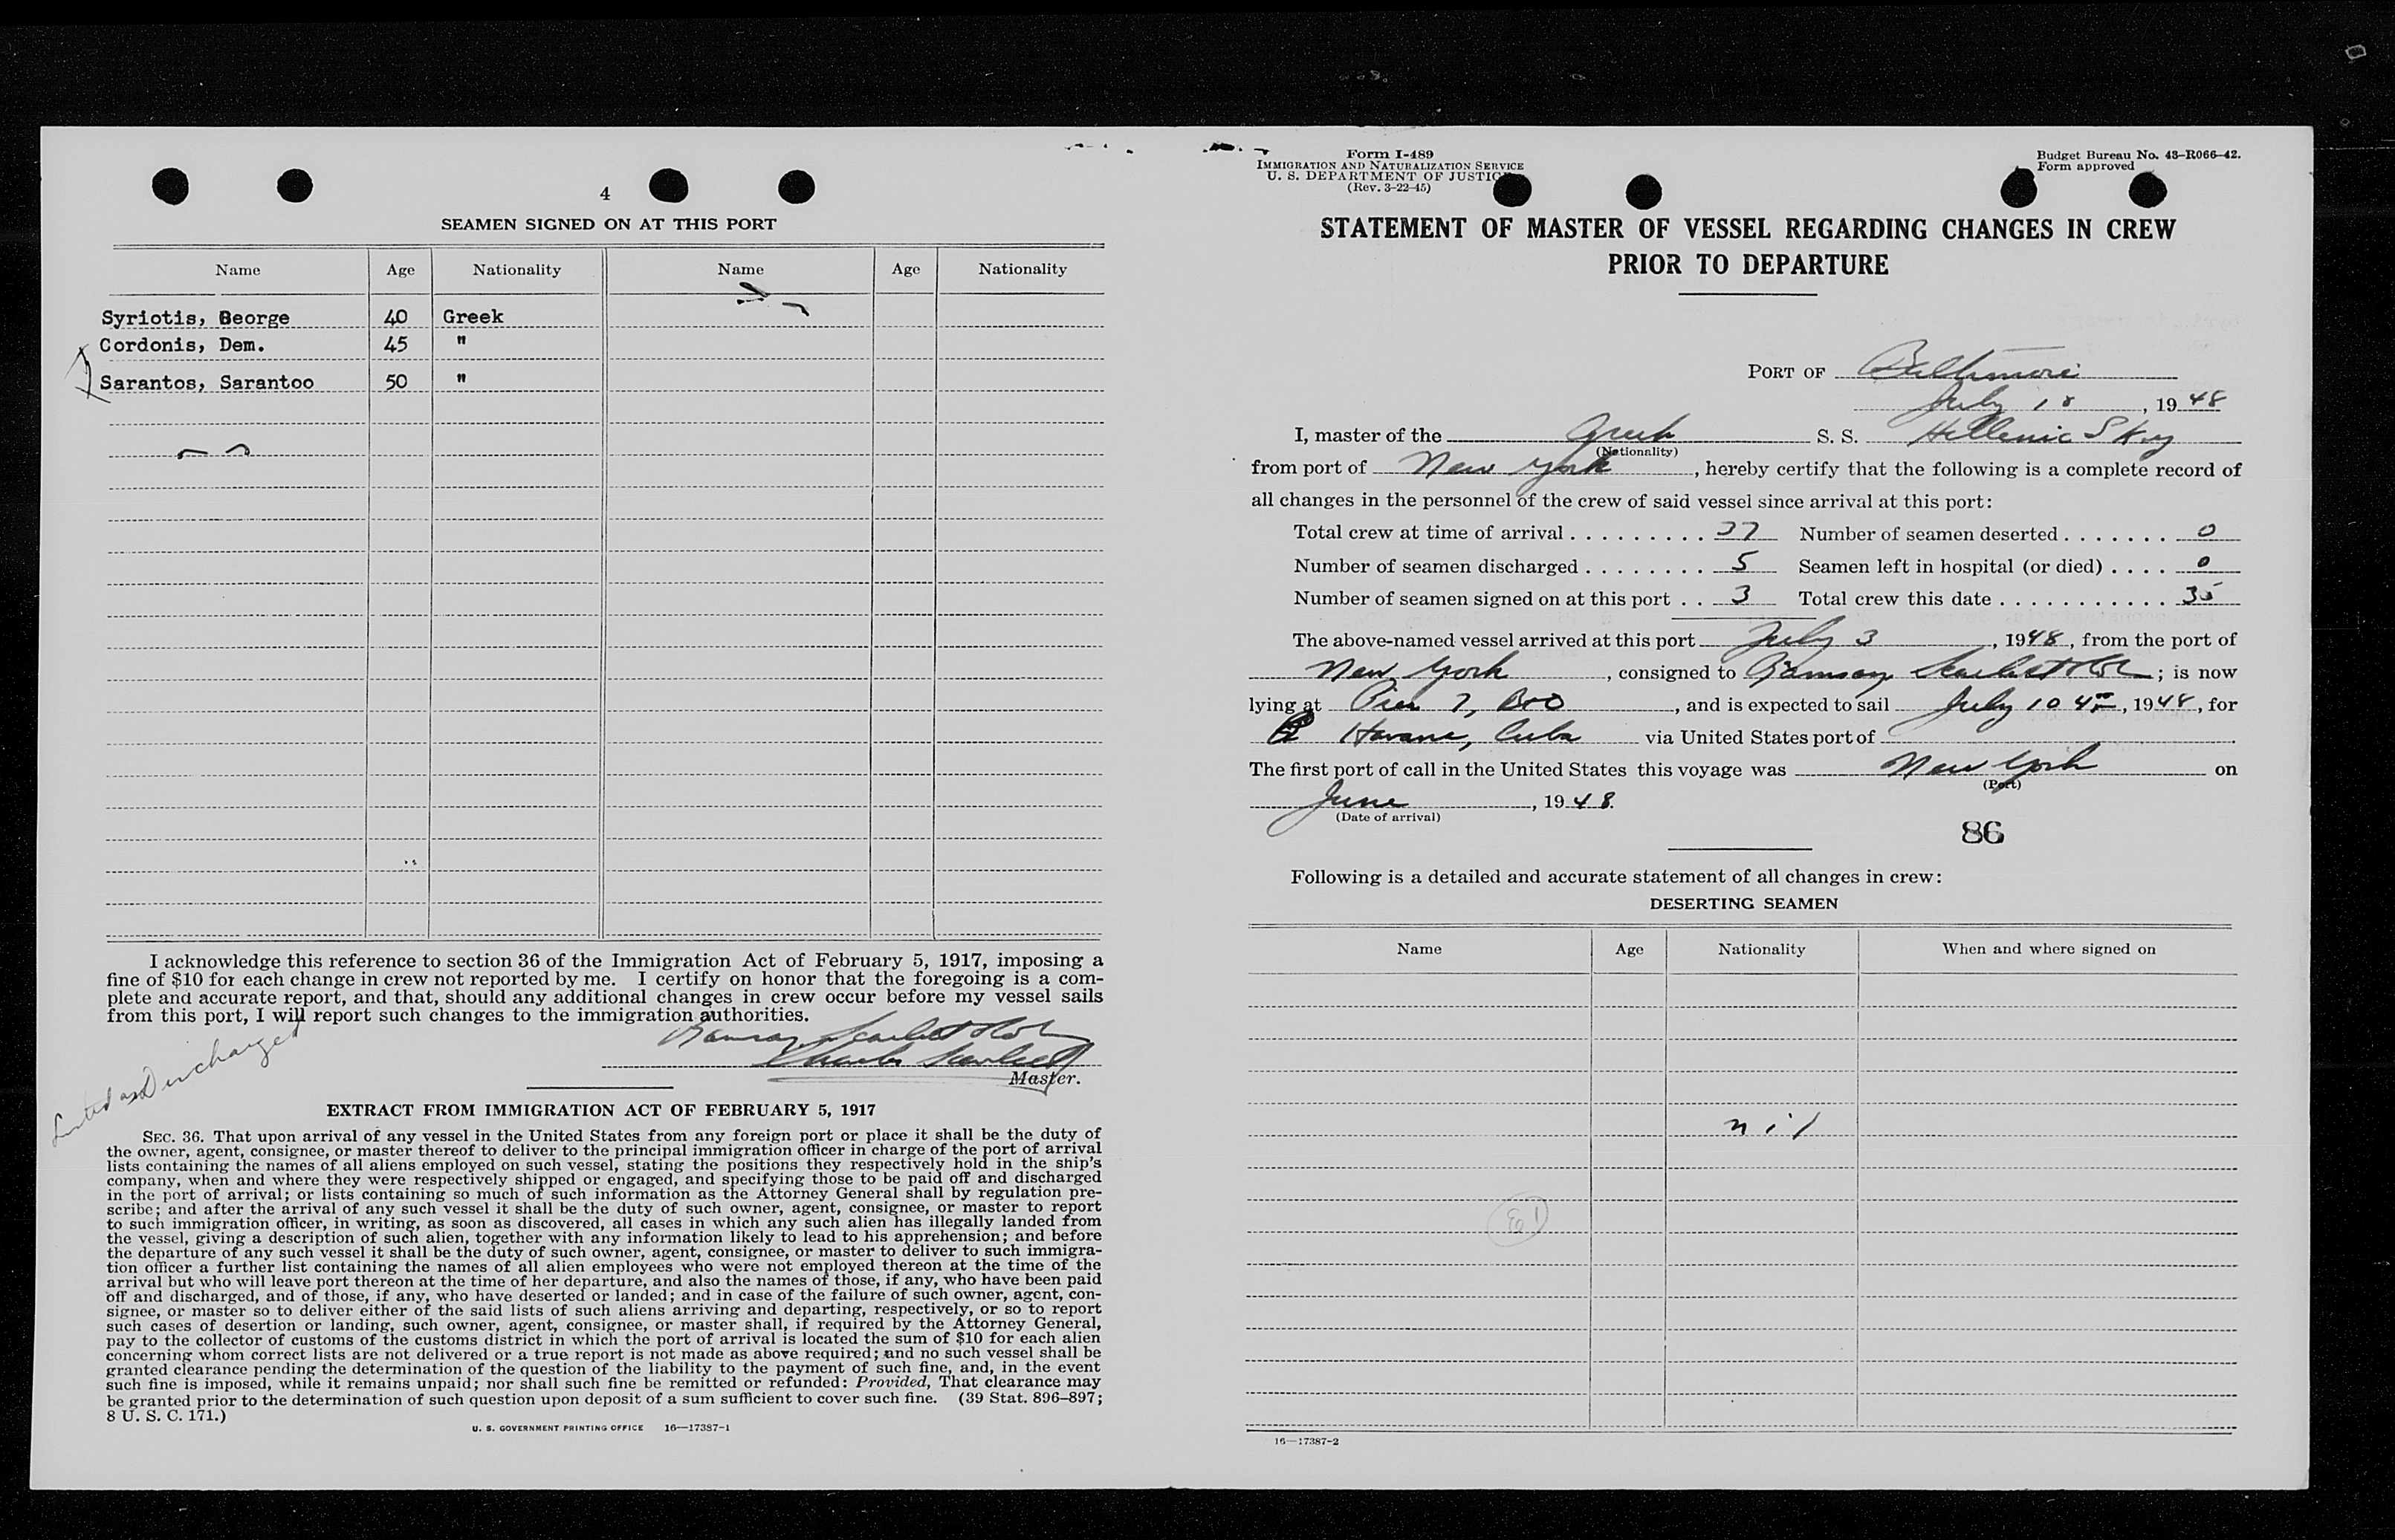 4
SEAMEN SIGNED ON AT THIS PORT
Name Age Nationality Name Age Nationality
Syriotis, George 40 Greek
Cordonis, Dem. 45 "
Sarantos, Sarantoo 50 "
I acknowledge this reference to section 36 of the Immigration Act of February 5, 1917, imposing a
fine of $10 for each change in crew not reported by me. I certify on honor that the foregoing is a com-
plete and accurate report, and that, should any additional changes in crew occur before my vessel sails
from this port, I will report such changes to the immigration authorities.
Ramsay Scarlett & Co
Charles Scarlett
Master.
Listed as Discharged
EXTRACT FROM IMMIGRATION ACT OF FEBRUARY 5, 1917
SEC. 36. That upon arrival of any vessel in the United States from any foreign port or place it shall be the duty of
the owner, agent, consignee, or master thereof to deliver to the principal immigration officer in charge of the port of arrival
lists containing the names of all aliens employed on such vessel, stating the positions they respectively hold in the ship's
company, when and where they were respectively shipped or engaged, and specifying those to be paid off and discharged
in the port of arrival; or lists containing so much of such information as the Attorney General shall by regulation pre-
scribe; and after the arrival of any such vessel it shall be the duty of such owner, agent, consignee, or master to report
to such immigration officer, in writing, as soon as discovered, all cases in which any such alien has illegally landed from
the vessel, giving a description of such alien, together with any information likely to lead to his apprehension; and before
the departure of any such vessel it shall be the duty of such owner, agent, consignee, or master to deliver to such immigra-
tion officer a further list containing the names of all alien employees who were not employed thereon at the time of the
arrival but who will leave port thereon at the time of her departure, and also the names of those, if any, who have been paid
off and discharged, and of those, if any, who have deserted or landed; and in case of the failure of such owner, agent, con-
signee, or master so to deliver either of the said lists of such aliens arriving and departing, respectively, or so to report
such cases of desertion or landing, such owner, agent, consignee, or master shall, if required by the Attorney General,
pay to the collector of customs of the customs district in which the port of arrival is located the sum of $10 for each alien
concerning whom correct lists are not delivered or a true report is not made as above required; and no such vessel shall be
granted clearance pending the determination of the question of the liability to the payment of such fine, and, in the event
such fine is imposed, while it remains unpaid; nor shall such fine be remitted or refunded: Provided, That clearance may
be granted prior to the determination of such question upon deposit of a sum sufficient to cover such fine. (39 Stat. 896–897;
8 U. S. C. 171.)
U. S. GOVERNMENT PRINTING OFFICE 16—17387-1
Form I-489
IMMIGRATION AND NATURALIZATION SERVICE
U. S. DEPARTMENT OF JUSTICE
(Rev. 3-22-45)
Budget Bureau No. 43-R066-42.
Form approved
STATEMENT OF MASTER OF VESSEL REGARDING CHANGES IN CREW
PRIOR TO DEPARTURE
PORT OF Baltimore
July 10, 1948
I, master of the Greek S. S. Hellenic Sky
(Nationality)
from port of New York, hereby certify that the following is a complete record of
all changes in the personnel of the crew of said vessel since arrival at this port:
Total crew at time of arrival . . . . . . . . . 37 Number of seamen deserted . . . . . . . 0
Number of seamen discharged . . . . . . . . 5 Seamen left in hospital (or died) . . . . 0
Number of seamen signed on at this port . . 3 Total crew this date . . . . . . . . . . . . 35
The above-named vessel arrived at this port July 3, 1948, from the port of
New York, consigned to Ramsay Scarlett & Co; is now
lying at Pier 7, B&O, and is expected to sail July 10 4, 1948, for
Havana, Cuba via United States port of
The first port of call in the United States this voyage was New York on
(Port)
June, 1948.
(Date of arrival)
86
Following is a detailed and accurate statement of all changes in crew:
DESERTING SEAMEN
Name Age Nationality When and where signed on
nil
16—17387-2